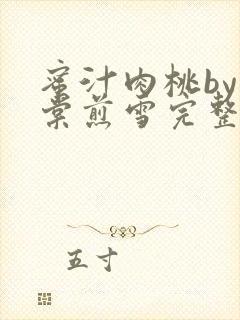 蜜汁肉桃by
棠煎雪完整
五寸